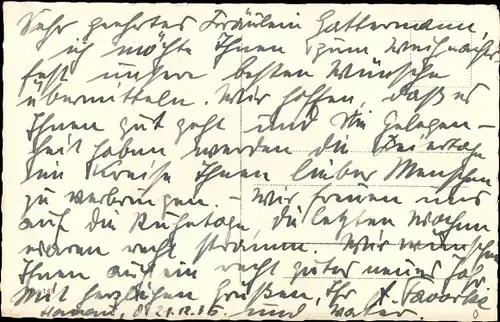 Sehr geehrtes Fräulein Gattermann,
ich möchte Ihnen zum Weihnachts-
fest unsere besten Wünsche
übermitteln. Wir hoffen, daß es
Ihnen gut geht und Sie Gelegen-
heit haben werden die Feiertage
im Kreise Ihnen lieber Menschen
zu verbringen. - Wir freuen uns
auf die Ruhetage, die letzten Wochen
waren recht stramm. Wir wünschen
Ihnen auch ein recht gutes neues Jahr.
Mit herzlichen Grüßen, Ihr
Hanau, d. 21.12.36. und